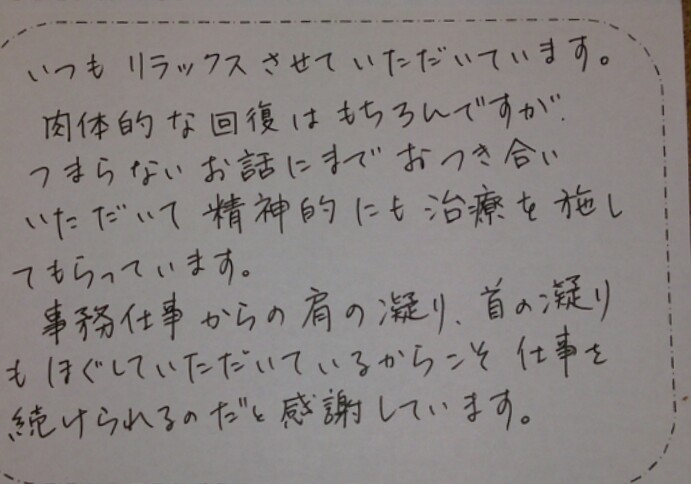 いつもリラックスさせていただいています。
肉体的な回復はもちろんですが、
つまらないお話にまでおつき合い
いただいて精神的にも治療を施し
てもらっています。
事務仕事からの肩の凝り、首の凝り
もほぐしていただいているからこそ仕事を
続けられるのだと感謝しています。